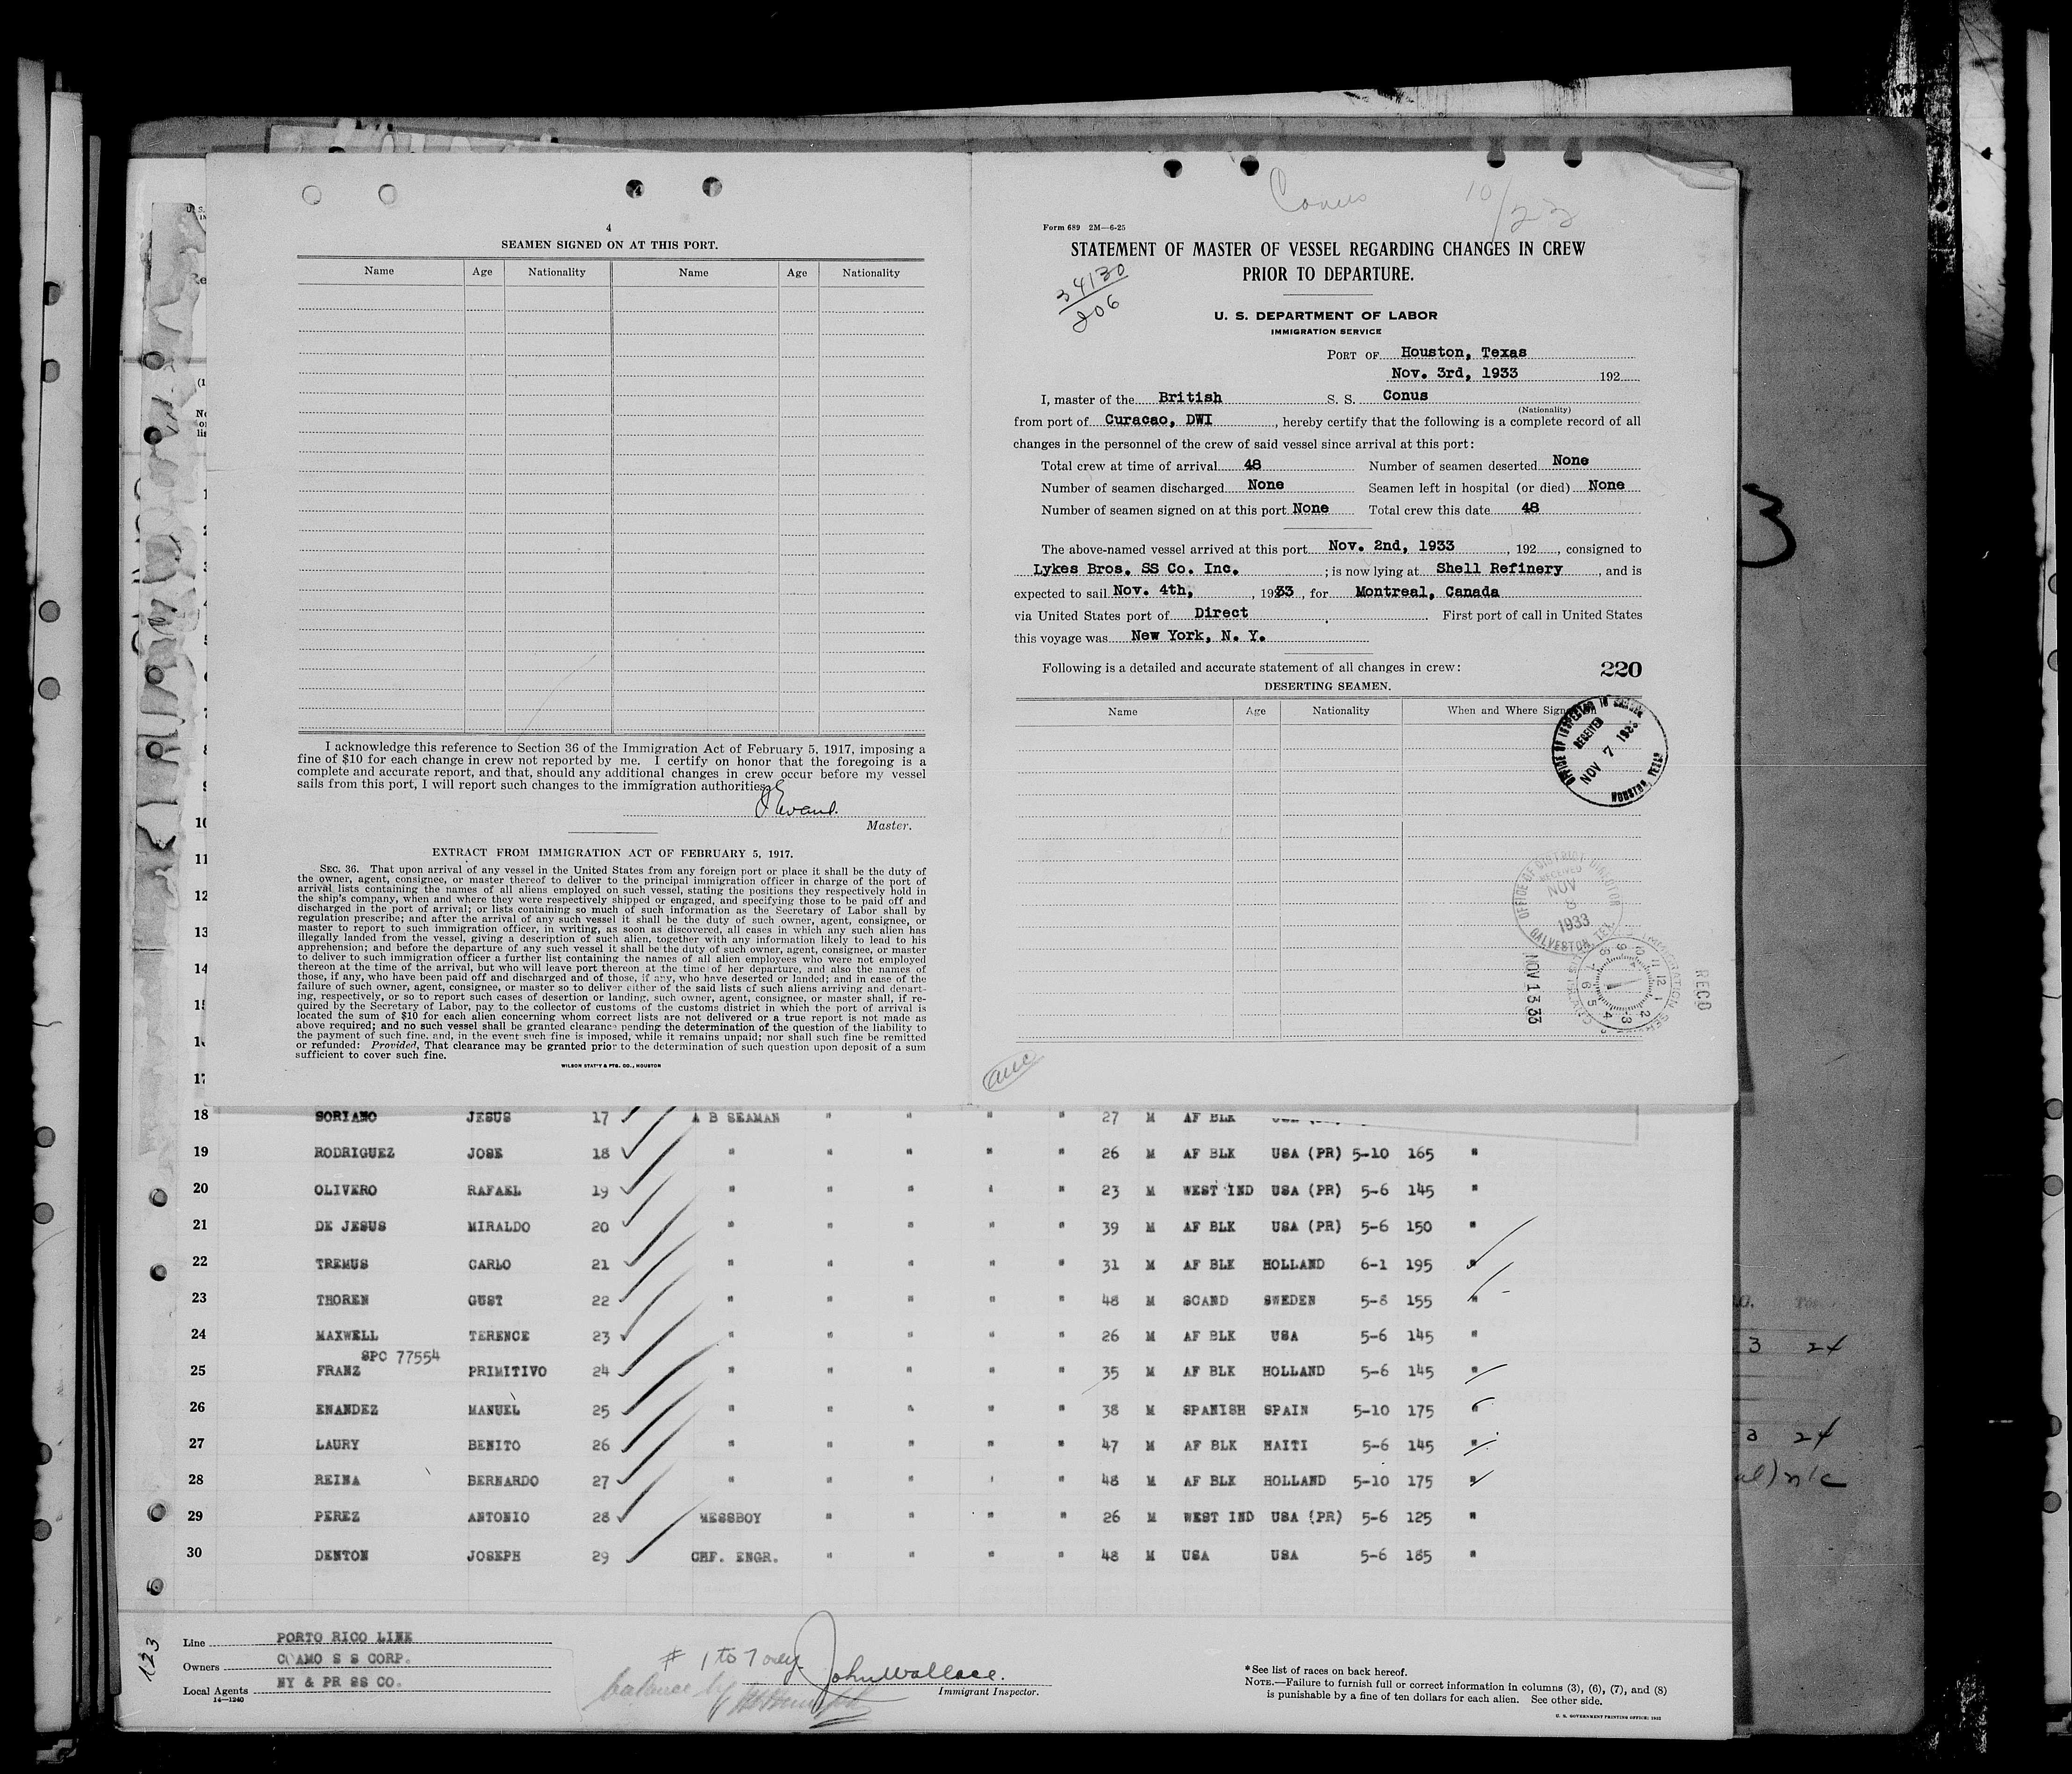 4
SEAMEN SIGNED ON AT THIS PORT.
Name Age Nationality Name Age Nationality
I acknowledge this reference to Section 36 of the Immigration Act of February 5, 1917, imposing a
fine of $10 for each change in crew not reported by me. I certify on honor that the foregoing is a
complete and accurate report, and that, should any additional changes in crew occur before my vessel
sails from this port, I will report such changes to the immigration authorities.
J Evans.
Master.
EXTRACT FROM IMMIGRATION ACT OF FEBRUARY 5, 1917.
SEC. 36. That upon arrival of any vessel in the United States from any foreign port or place it shall be the duty of
the owner, agent, consignee, or master thereof to deliver to the principal immigration officer in charge of the port of
arrival lists containing the names of all aliens employed on such vessel, stating the positions they respectively hold in
the ship's company, when and where they were respectively shipped or engaged, and specifying those to be paid off and
discharged in the port of arrival; or lists containing so much of such information as the Secretary of Labor shall by
regulation prescribe; and after the arrival of any such vessel it shall be the duty of such owner, agent, consignee, or
master to report to such immigration officer, in writing, as soon as discovered, all cases in which any such alien has
illegally landed from the vessel, giving a description of such alien, together with any information likely to lead to his
apprehension; and before the departure of any such vessel it shall be the duty of such owner, agent, consignee, or master
to deliver to such immigration officer a further list containing the names of all alien employees who were not employed
thereon at the time of the arrival, but who will leave port thereon at the time of her departure, and also the names of
those, if any, who have been paid off and discharged and of those, if any, who have deserted or landed; and in case of the
failure of such owner, agent, consignee, or master so to deliver either of the said lists of such aliens arriving and depart-
ing, respectively, or so to report such cases of desertion or landing, such owner, agent, consignee, or master shall, if re-
quired by the Secretary of Labor, pay to the collector of customs of the customs district in which the port of arrival is
located the sum of $10 for each alien concerning whom correct lists are not delivered or a true report is not made as
above required; and no such vessel shall be granted clearance pending the determination of the question of the liability to
the payment of such fine, and, in the event such fine is imposed, while it remains unpaid; nor shall such fine be remitted
or refunded: Provided, That clearance may be granted prior to the determination of such question upon deposit of a sum
sufficient to cover such fine.
WILSON STAT'Y & PTG. CO., HOUSTON
Conus 10/23
Form 689 2M—6-25
STATEMENT OF MASTER OF VESSEL REGARDING CHANGES IN CREW
PRIOR TO DEPARTURE.
34130
206
U. S. DEPARTMENT OF LABOR
IMMIGRATION SERVICE
PORT OF Houston, Texas
Nov. 3rd, 1933 192
I, master of the British S. S. Conus
(Nationality)
from port of Curacao, DWI, hereby certify that the following is a complete record of all
changes in the personnel of the crew of said vessel since arrival at this port:
Total crew at time of arrival 48 Number of seamen deserted None
Number of seamen discharged None Seamen left in hospital (or died) None
Number of seamen signed on at this port None Total crew this date 48
The above-named vessel arrived at this port Nov. 2nd, 1933, 192, consigned to
Lykes Bros. SS Co. Inc. ; is now lying at Shell Refinery, and is
expected to sail Nov. 4th, , 1933, for Montreal, Canada
via United States port of Direct. First port of call in United States
this voyage was New York, N. Y.
Following is a detailed and accurate statement of all changes in crew: 220
DESERTING SEAMEN.
Name Age Nationality When and Where Sign
OFFICE OF INSPECTOR IN CHARGE
RECEIVED
NOV 7 1933
HOUSTON, TEXAS
OFFICE OF DISTRICT DIRECTOR
RECEIVED
NOV 8 1933
GALVESTON, TEX.
NOV 13 33
RECD
3
18 SORIANO JESUS 17 A B SEAMAN " " " " 27 M AF BLK
19 RODRIGUEZ JOSE 18 " " " " " 26 M AF BLK USA (PR) 5-10 165 "
20 OLIVERO RAFAEL 19 " " " " " 23 M WEST IND USA (PR) 5-6 145 "
21 DE JESUS MIRALDO 20 " " " " " 39 M AF BLK USA (PR) 5-6 150 "
22 TREMUS CARLO 21 " " " " " 31 M AF BLK HOLLAND 6-1 195 "
23 THOREN GUST 22 " " " " " 48 M SCAND SWEDEN 5-8 155 "
24 MAXWELL TERENCE 23 " " " " " 26 M AF BLK USA 5-6 145 "
SPC 77554
25 FRANZ PRIMITIVO 24 " " " " " 35 M AF BLK HOLLAND 5-6 145 "
26 ENANDEZ MANUEL 25 " " " " " 38 M SPANISH SPAIN 5-10 175 "
27 LAURY BENITO 26 " " " " " 47 M AF BLK HAITI 5-6 145 "
28 REINA BERNARDO 27 " " " " " 48 M AF BLK HOLLAND 5-10 175 "
29 PEREZ ANTONIO 28 MESSBOY " " " " 26 M WEST IND USA (PR) 5-6 125 "
30 DENTON JOSEPH 29 CHF. ENGR. " " " " 48 M USA USA 5-6 185 "
123
Line PORTO RICO LINE
Owners COAMO S S CORP.
Local Agents NY & PR SS CO.
14—1240
# 1 to 7 only
balance by
John Wallace.
Immigrant Inspector.
*See list of races on back hereof.
NOTE.—Failure to furnish full or correct information in columns (3), (6), (7), and (8)
is punishable by a fine of ten dollars for each alien. See other side.
U. S. GOVERNMENT PRINTING OFFICE: 1932
3 24
3 24